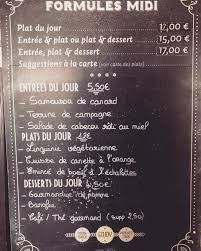 FORMULES MIDI
Plat du jour 12,00 €
Entrée & plat ou plat & dessert 15,00 €
Entrée, plat & dessert 17,00 €
Suggestions à la carte (voir carte des plats)
ENTRÉES DU JOUR 5,50€
- Samoussa de canard
- Terrine de campagne
- Salade de cabecou rôti au miel
PLATS DU JOUR 12€
- Linguine végétarienne
- Cuisse de canette à l'orange
- Emincé de boeuf à l'échalottes
DESSERTS DU JOUR 4,50€
- Gourmandise de pomme
- Banofee
- Café / Thé gourmand (supp 2,50)